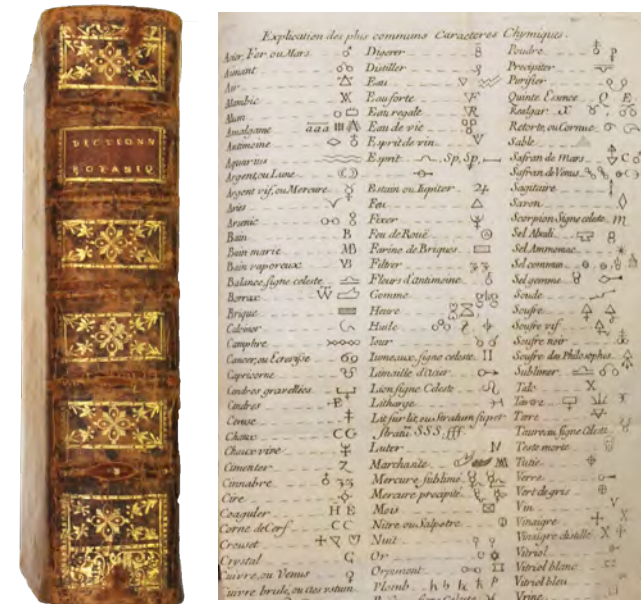 DICTIONN
BOTANIQ
Explication des plus communs Caracteres Chymiques.
Acier, Fer ou Mars
Aimant
Air
Alambic
Alum
Amalgame aaa
Antimoine
Aquarius
Argent, ou Lune
Argent vif, ou Mercure
Aries
Arsenic
Bain B
Bain marie MB
Bain vaporeux VB
Balance, signe celeste
Borrax
Brique
Calciner
Camphre
Cancer, ou Ecrevisse
Capricorne
Cendres gravellées
Cendres E
Ceruse
Chaux CG
Chaux vive
Cimenter Z
Cinnabre
Cire
Coaguler H E
Corne de Cerf CC
Creuset
Crystal
Cuivre, ou Venus
Cuivre brulé, ou
Digerer
Distiller
Eau
Eau forte
Eau regale
Eau de vie
Esprit de vin
Esprit Sp, Sp,
Estain ou Jupiter
Feu
Fixer
Feu de Rouë
Farine de Briques
Filtrer
Fleurs d'antimoine
Gomme
Heure
Huile
Jour
Jumeaux, signe celeste II
Limaille d'acier
Lion signe Celeste
Litharge
Lit sur lit, ou Stratum super
strata SSS, fff
Luter
Marchasite
Mercure sublimé
Mercure precipité
Mois
Nitre ou Salpetre
Nuit
Or
Orpiment
Plomb
Poudre
Precipiter
Purifier
Quinte Essence Q E
Realgar
Retorte, ou Cornue
Sable
Safran de Mars
Safran de Venus
Sagitaire
Savon
Scorpion Signe celeste
Sel Alkali
Sel Ammoniac
Sel commun
Sel gemme
Soude
Soufre
Soufre vif
Soufre noir
Soufre des Philosophes
Sublimer
Talc X
Tartre
Terre
Taureau signe Celeste
Teste morte
Tutie
Verre
Vert de gris
Vin V
Vinaigre
Vinaigre distillé
Vitriol
Vitriol blanc
Vitriol bleu
Urine